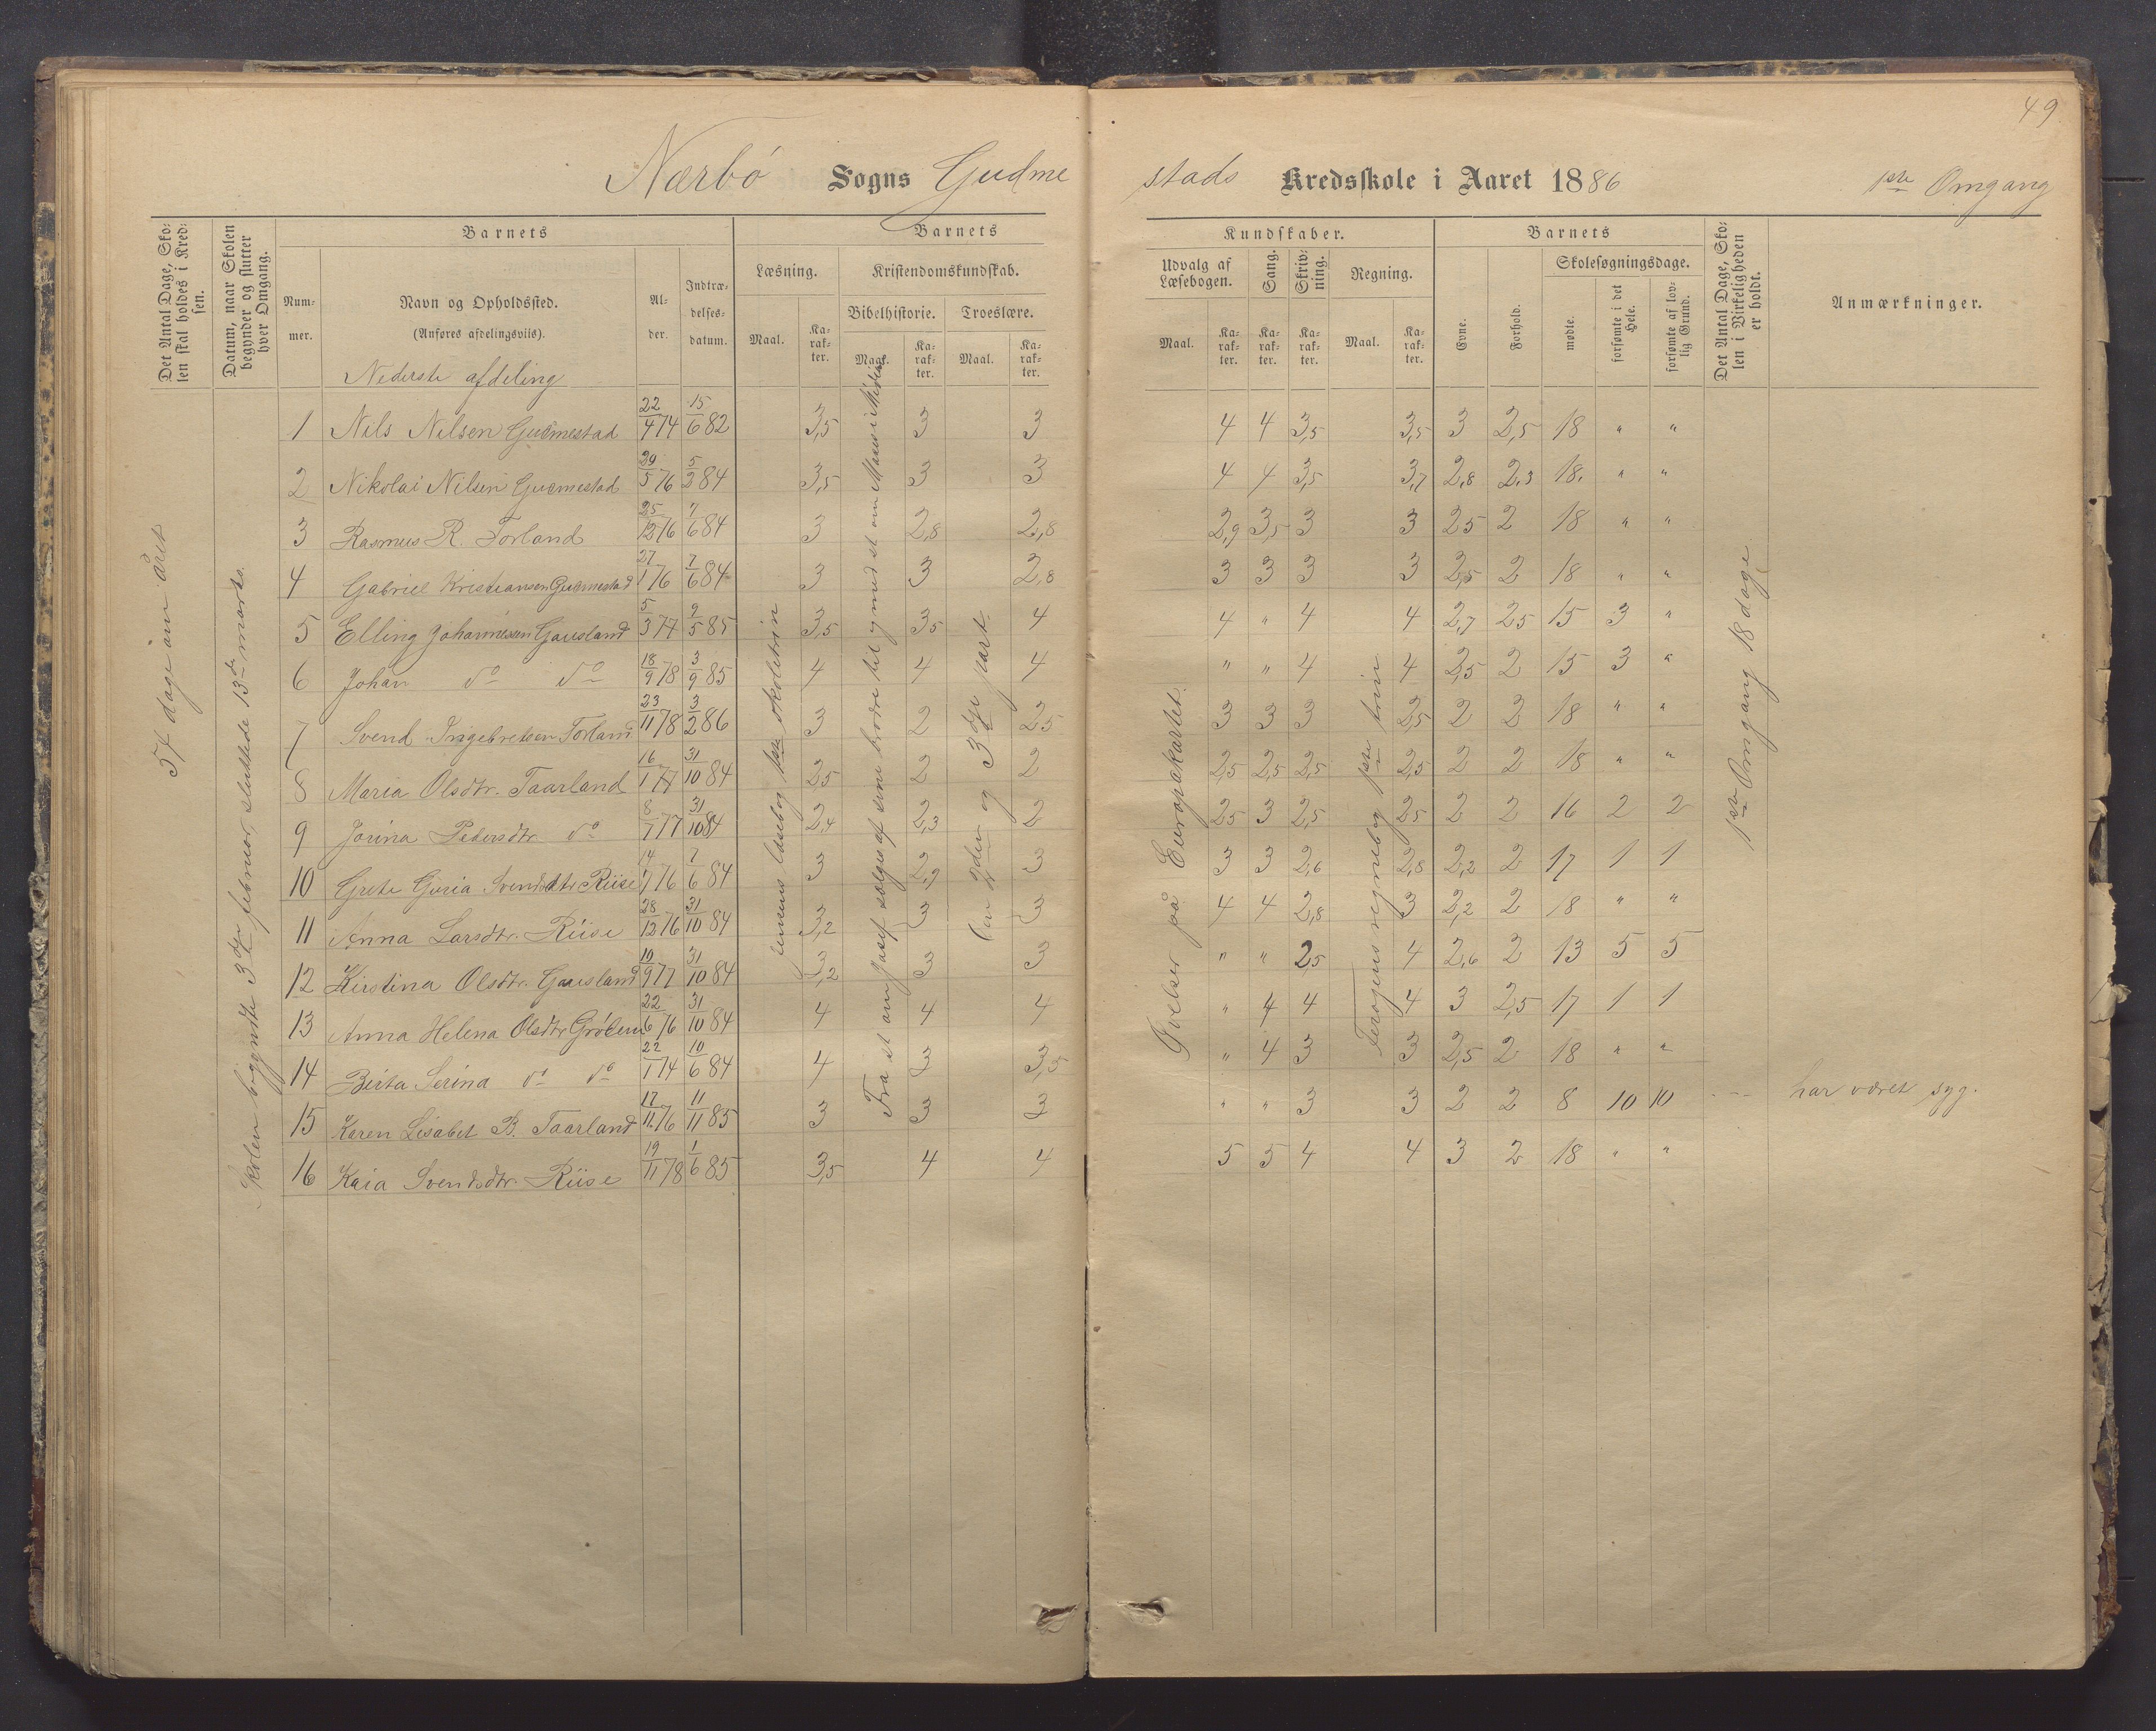 49
Nærbö Sogns Gudmestads Kredsskole i Aaret 1886 1ste Omgang
Det Antal Dage, Skolen skal holdes i Kredsen.
Datum, naar Skolen begynder og slutter hver Omgang.
Barnets
Nummer.
Navn og Opholdssted.
(Anføres afdelingsviis).
Alder.
Indtrædelsesdatum.
Barnets Kundskaber.
Læsning.
Maal. Karakter.
Kristendomskundskab.
Bibelhistorie.
Maal. Karakter.
Troeslære.
Maal. Karakter.
Udvalg af Læsebogen.
Maal. Karakter.
Sang.
Karakter.
Skrivning.
Karakter.
Regning.
Maal. Karakter.
Barnets
Evne.
Forhold.
Skolesøgningsdage.
mødte.
forsømte i det Hele.
forsømte af lovlig Grund.
Det Antal Dage, Skolen i Virkeligheden er holdt.
Anmærkninger.
Nederste afdeling
54 dage om året
Skolen begyndte 3die februar, sluttede 13de marts.
Jensens læsebog 1ste skoletrin
Fra st om Josef sælges af sine brødre til og med st om Moses i Midian
1ste Omgang 18 dage
Øvelser på Europakartet.
regnebog 1ste trin
1 Nils Nilsen Gudmestad 22/4 74 15/6 82 3,5 3 3 4 4 3,5 3,5 3 2,5 18 " "
2 Nikolai Nilsen Gudmestad 29/5 76 5/2 84 3,5 3 3 4 4 3,5 3,7 2,8 2,3 18. " "
3 Rasmus R. Torland 25/12 76 7/6 84 3 2,8 2,8 2,9 3,5 3 3 25 2 18 " "
4 Gabriel Kristiansen Gudmestad 27/1 76 7/6 84 3 3 2,8 3 3 3 3 2,5 2 18 " "
5 Elling Johannesen Gausland 5/3 77 9/5 85 3,5 35 4 4 " 4 4 2,7 25 15 3 "
6 Johan do do 18/9 78 3/9 85 4 4 4 " " 4 4 2,5 2 15 3 "
7 Svend Ingebretsen Torland 23/11 78 3/2 86 3 2 25 3 3 3 2,5 2 2 18 " "
8 Maria Olsdtr. Taarland 16/1 77 31/10 84 2,5 2 2 2,5 2,5 2,5 2,5 2 2 18 " "
9 Jorina Pedersdtr. do 8/7 77 31/10 84 2,4 2,3 2 25 3 2,5 25 2 2 16 2 2
10 Grete Guria Svendsdtr Riise 14/7 76 7/6 84 3 2,9 3 3 3 2,6 2,8 2,2 2 17 1 1
11 Anna Larsdtr. Riise 28/12 76 31/10 84 3,2 3 3 4 4 2,8 3 2,2 2 18 " "
12 Kirstina Olsdtr. Gausland 10/9 77 31/10 84 3,2 3 3 " " 2,5 4 2,6 2 13 5 5
13 Anna Helena Olsdtr Grödem 22/6 76 31/10 84 4 4 4 " 4 4 4 3 2,5 17 1 1
14 Berta Serina do do 22/1 74 10/6 84 4 3 3,5 " 4 3 3 2,5 2 18 " "
15 Karen Lisabet B. Taarland 17/11 76 11/11 85 3 3 3 " " 3 3 2 2 8 10 10 har været syg.
16 Kaia Svendsdtr. Riise 19/11 78 1/6 85 3,5 4 4 5 5 4 4 3 2 18 " "